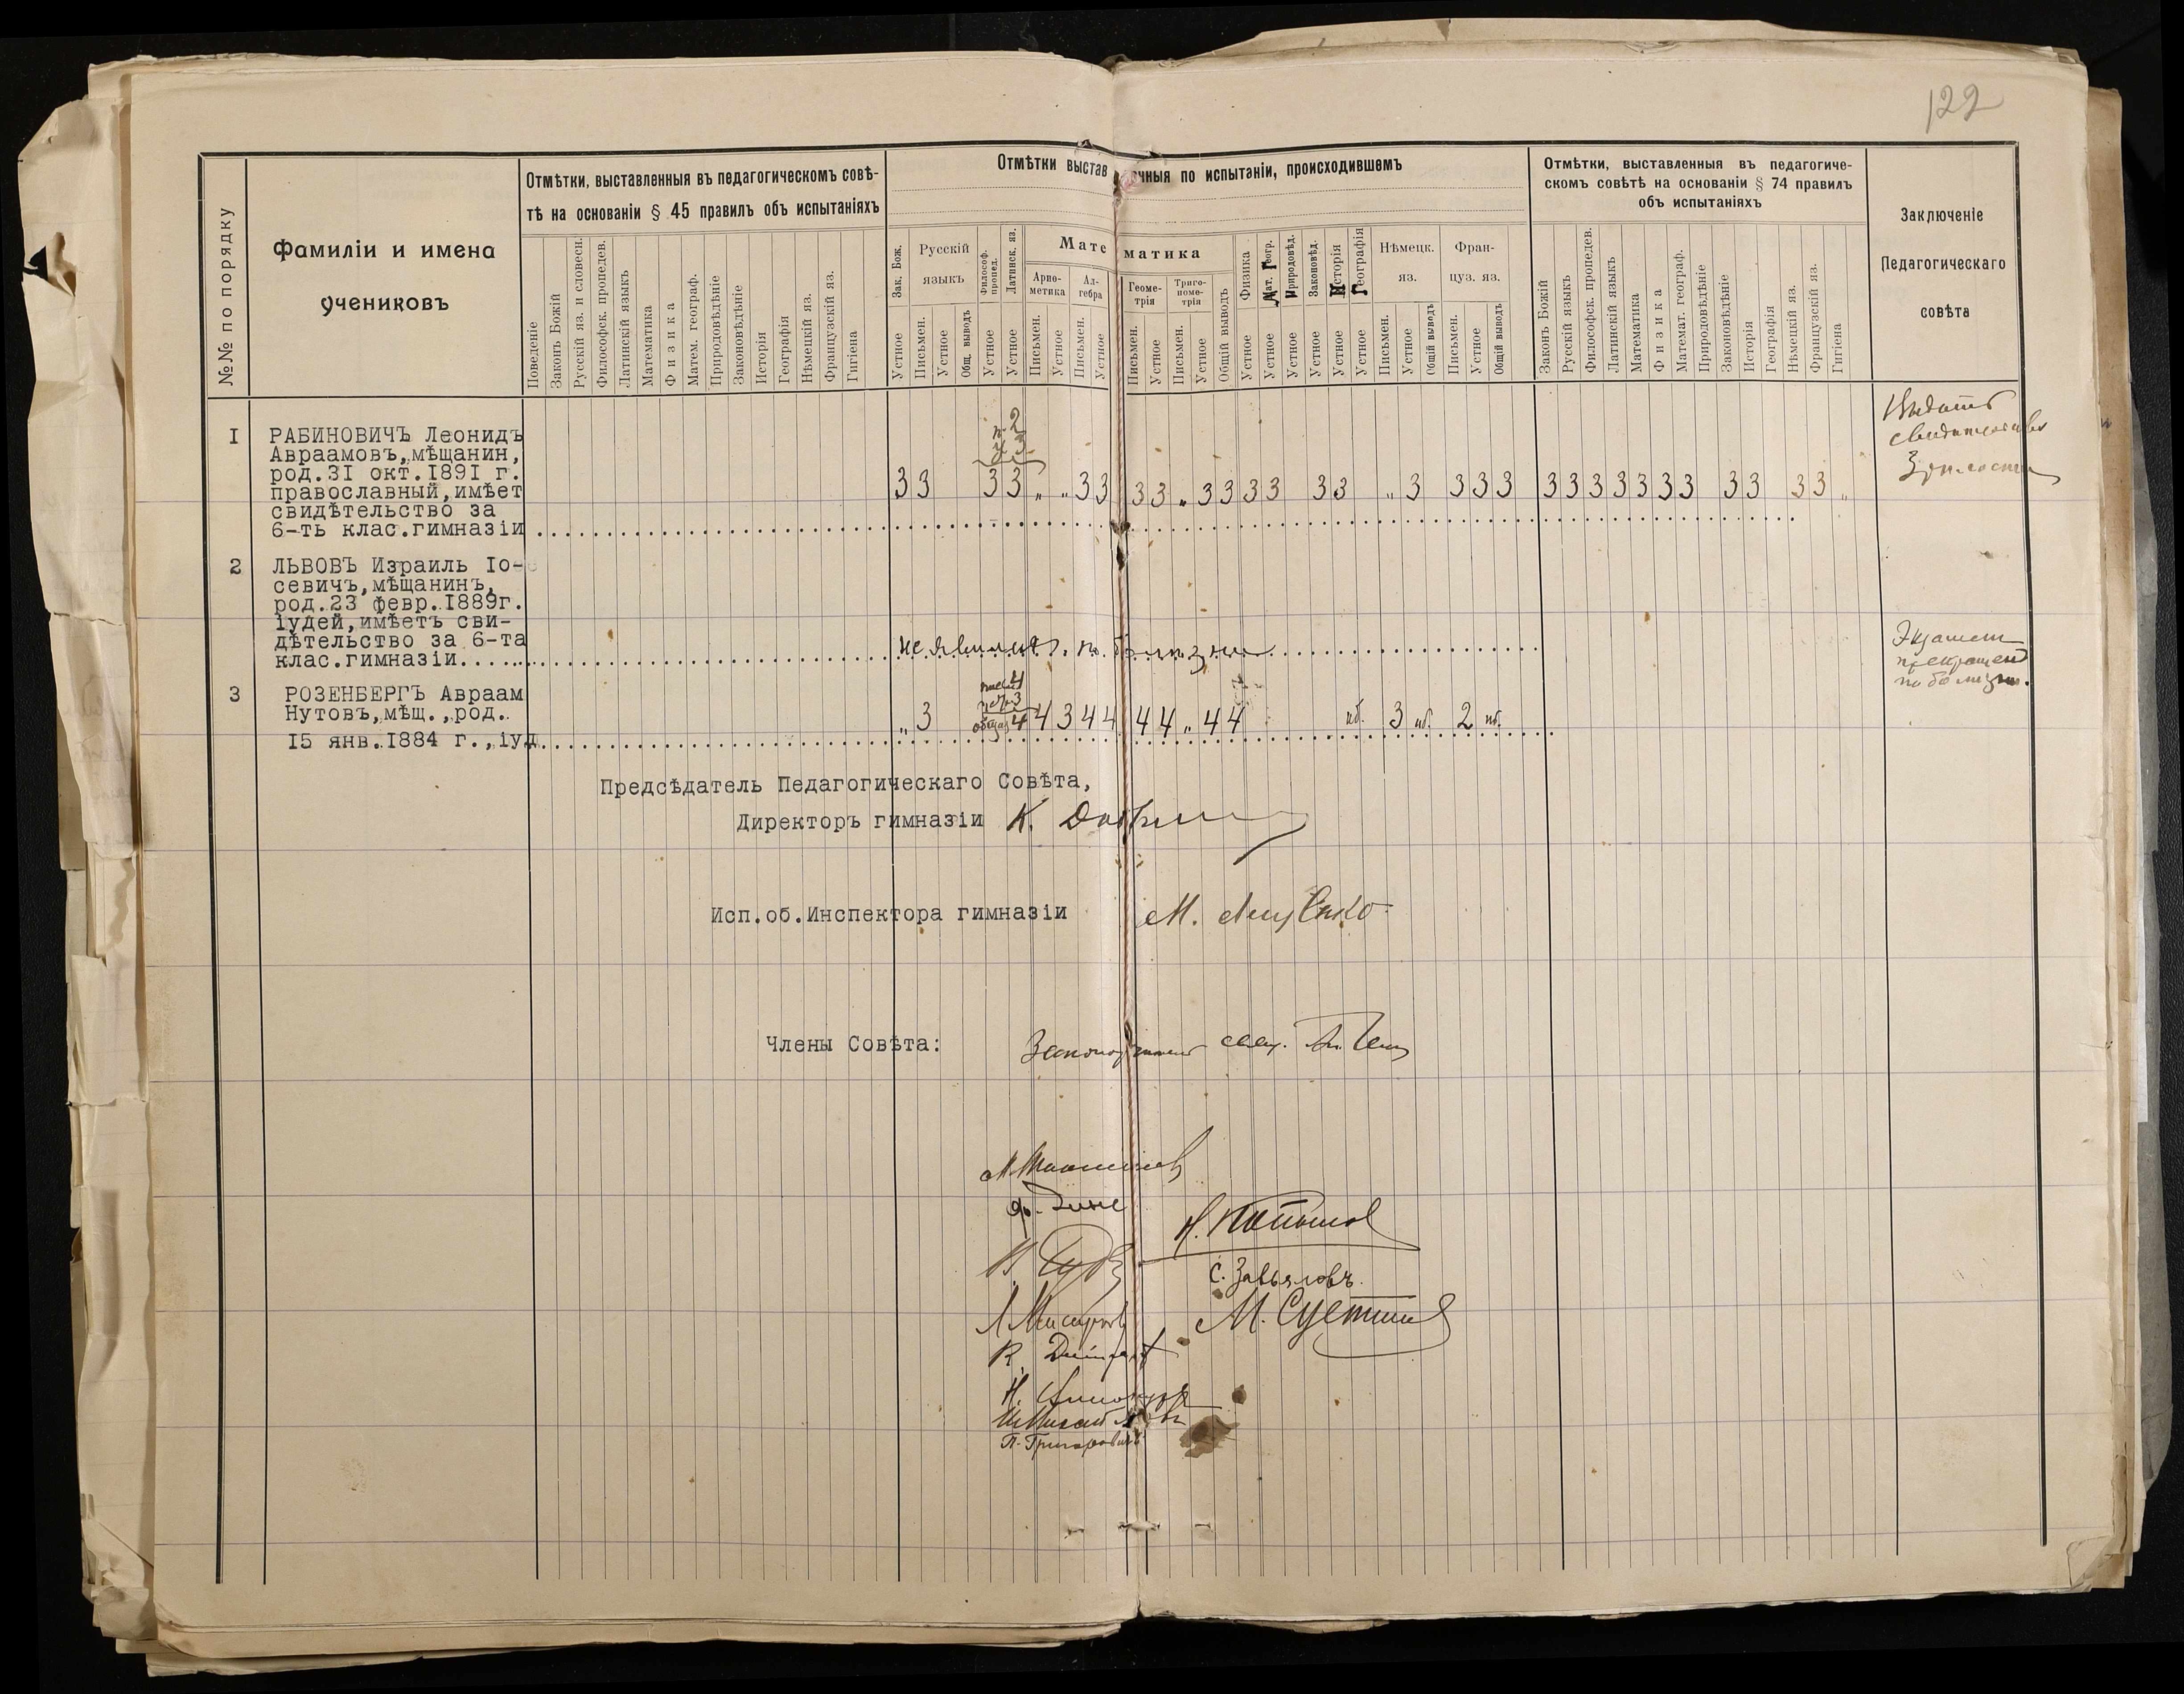 122
№№ по порядку
Фамиліи и имена
учениковъ
Отмѣтки, выставленныя въ педагогическомъ совѣ-
тѣ на основаніи § 45 правилъ объ испытаніяхъ
Поведеніе
Законъ Божій
Русскій яз. и словесн.
Философск. пропедев.
Латинскій языкъ
Математика
Физика
Матем. географ.
Природовѣдѣніе
Законовѣдѣніе
Исторія
Географія
Нѣмецкій яз.
Французскій яз.
Гигіена
Отмѣтки выстав чныя по испытаніи, происходившемъ
Зак. Бож.
Устное
Русскій
языкъ
Письмен.
Устное
Общ. выводъ
Философ.
пропед.
Устное
Латинск. яз.
Устное
Мате матика
Арио-
метика
Письмен.
Устное
Ал-
гебра
Письмен.
Устное
Геоме-
трія
Письмен.
Устное
Триго-
номе-
трія
Письмен.
Устное
Общій выводъ
Физика
Устное
Мат. Геогр.
Устное
Природовѣд.
Устное
Законовѣд.
Устное
Исторія
Устное
Географія
Устное
Нѣмецк.
яз.
Письмен.
Устное
Общій выводъ
Фран-
цуз. яз.
Письмен.
Устное
Общій выводъ
Отмѣтки, выставленныя въ педагогиче-
скомъ совѣтѣ на основаніи § 74 правилъ
объ испытаніяхъ
Законъ Божій
Русскій языкъ
Философск. пропедев.
Латинскій языкъ
Математика
Физика
Математ. географ.
Природовѣдѣніе
Законовѣдѣніе
Исторія
Географія
Нѣмецкій яз.
Французскій яз.
Гигіена
Заключеніе
Педагогическаго
совѣта
I
РАБИНОВИЧЪ Леонидъ
Авраамовъ, мѣщанин,
род. 31 окт. 1891 г.
православный, имѣет
свидѣтельство за
6-ть клас. гимназіи
п. 2
у 3
3 3 3 3 „ „ 3 3 3 3 „ 3 3 3 3 3 3 „ 3 3 3 3 3 3 3 3 3 3 3 3 3 3 3 „
Выдать
свидѣтельство
Зрѣлости
2
ЛЬВОВЪ Израиль Іо-
севичъ, мѣщанинъ,
род. 23 февр. 1889г.
іудей, имѣетъ сви-
дѣтельство за 6-та
клас. гимназіи......
не явился по болѣзни
Экзамен
прекращен
по болѣзни.
3
РОЗЕНБЕРГЪ Авраам
Нутовъ, мѣщ., род.
15 янв. 1884 г., іуд
пис. 4
уст. 3
общая 4
„ 3 4 3 4 4 4 4 „ 4 4 нб. 3 нб. 2 нб.
Предсѣдатель Педагогическаго Совѣта,
Директоръ гимназіи К.
Исп. об. Инспектора гимназіи М.
Члены Совѣта: Законоучитель свящ.
С. Завьяловъ.
П. Григоровичъ